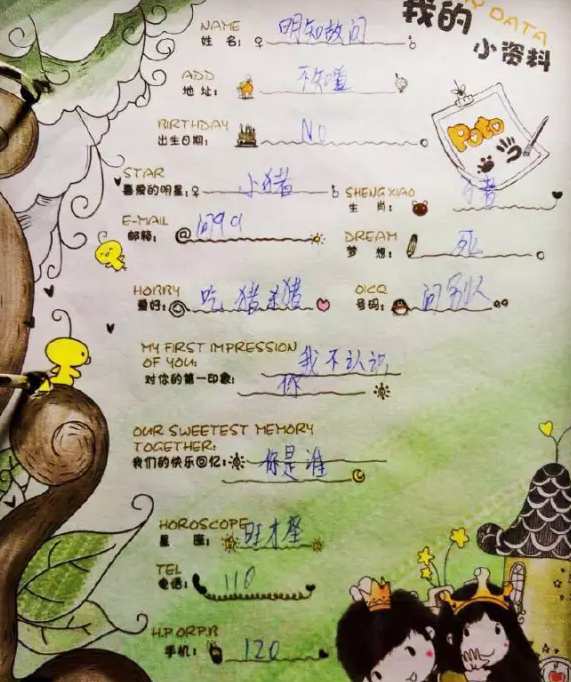 MY DATA
我的
小资料
NAME
姓 名: 明知故问
ADD
地址: 不知道
Poto
BIRTHDAY
出生日期: No
STAR
喜爱的明星: 小猪
SHENG XIAO
生 肖: 猪
E-MAIL
邮箱: @ 问9a
DREAM
梦 想: 死
HOBBY
爱好: 吃猪杀猪
OICQ
号码: 问别人
MY FIRST IMPRESSION
OF YOU: 我不认识
对你的第一印象: 你
OUR SWEETEST MEMORY
TOGETHER:
我们的快乐回忆: 你是谁
HOROSCOPE
星 座: 旺才座
TEL
电话: 110
H.P OR P.B
手机: 120